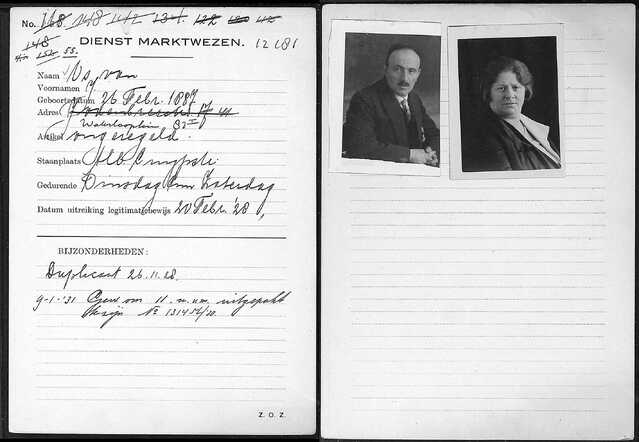 No. 168 148 142 134 122 120 112
148
DIENST MARKTWEZEN. 12181
55.
Naam Os, van
Voornamen
Geboortedatum 26 Febr. 1887
Adres 17 41
Waterlooplein 82 II
Artikel ongeregeld.
Staanplaats Alb. Cuypstr.
Gedurende Dinsdag t/m Zaterdag
Datum uitreiking legitimatiebewijs 20 Febr. '28,
BIJZONDERHEDEN:
Duplicaat 26.11.28
9-1-'31 om 11. v.m. uitgepakt
No 1314 M/30
Z. O. Z.